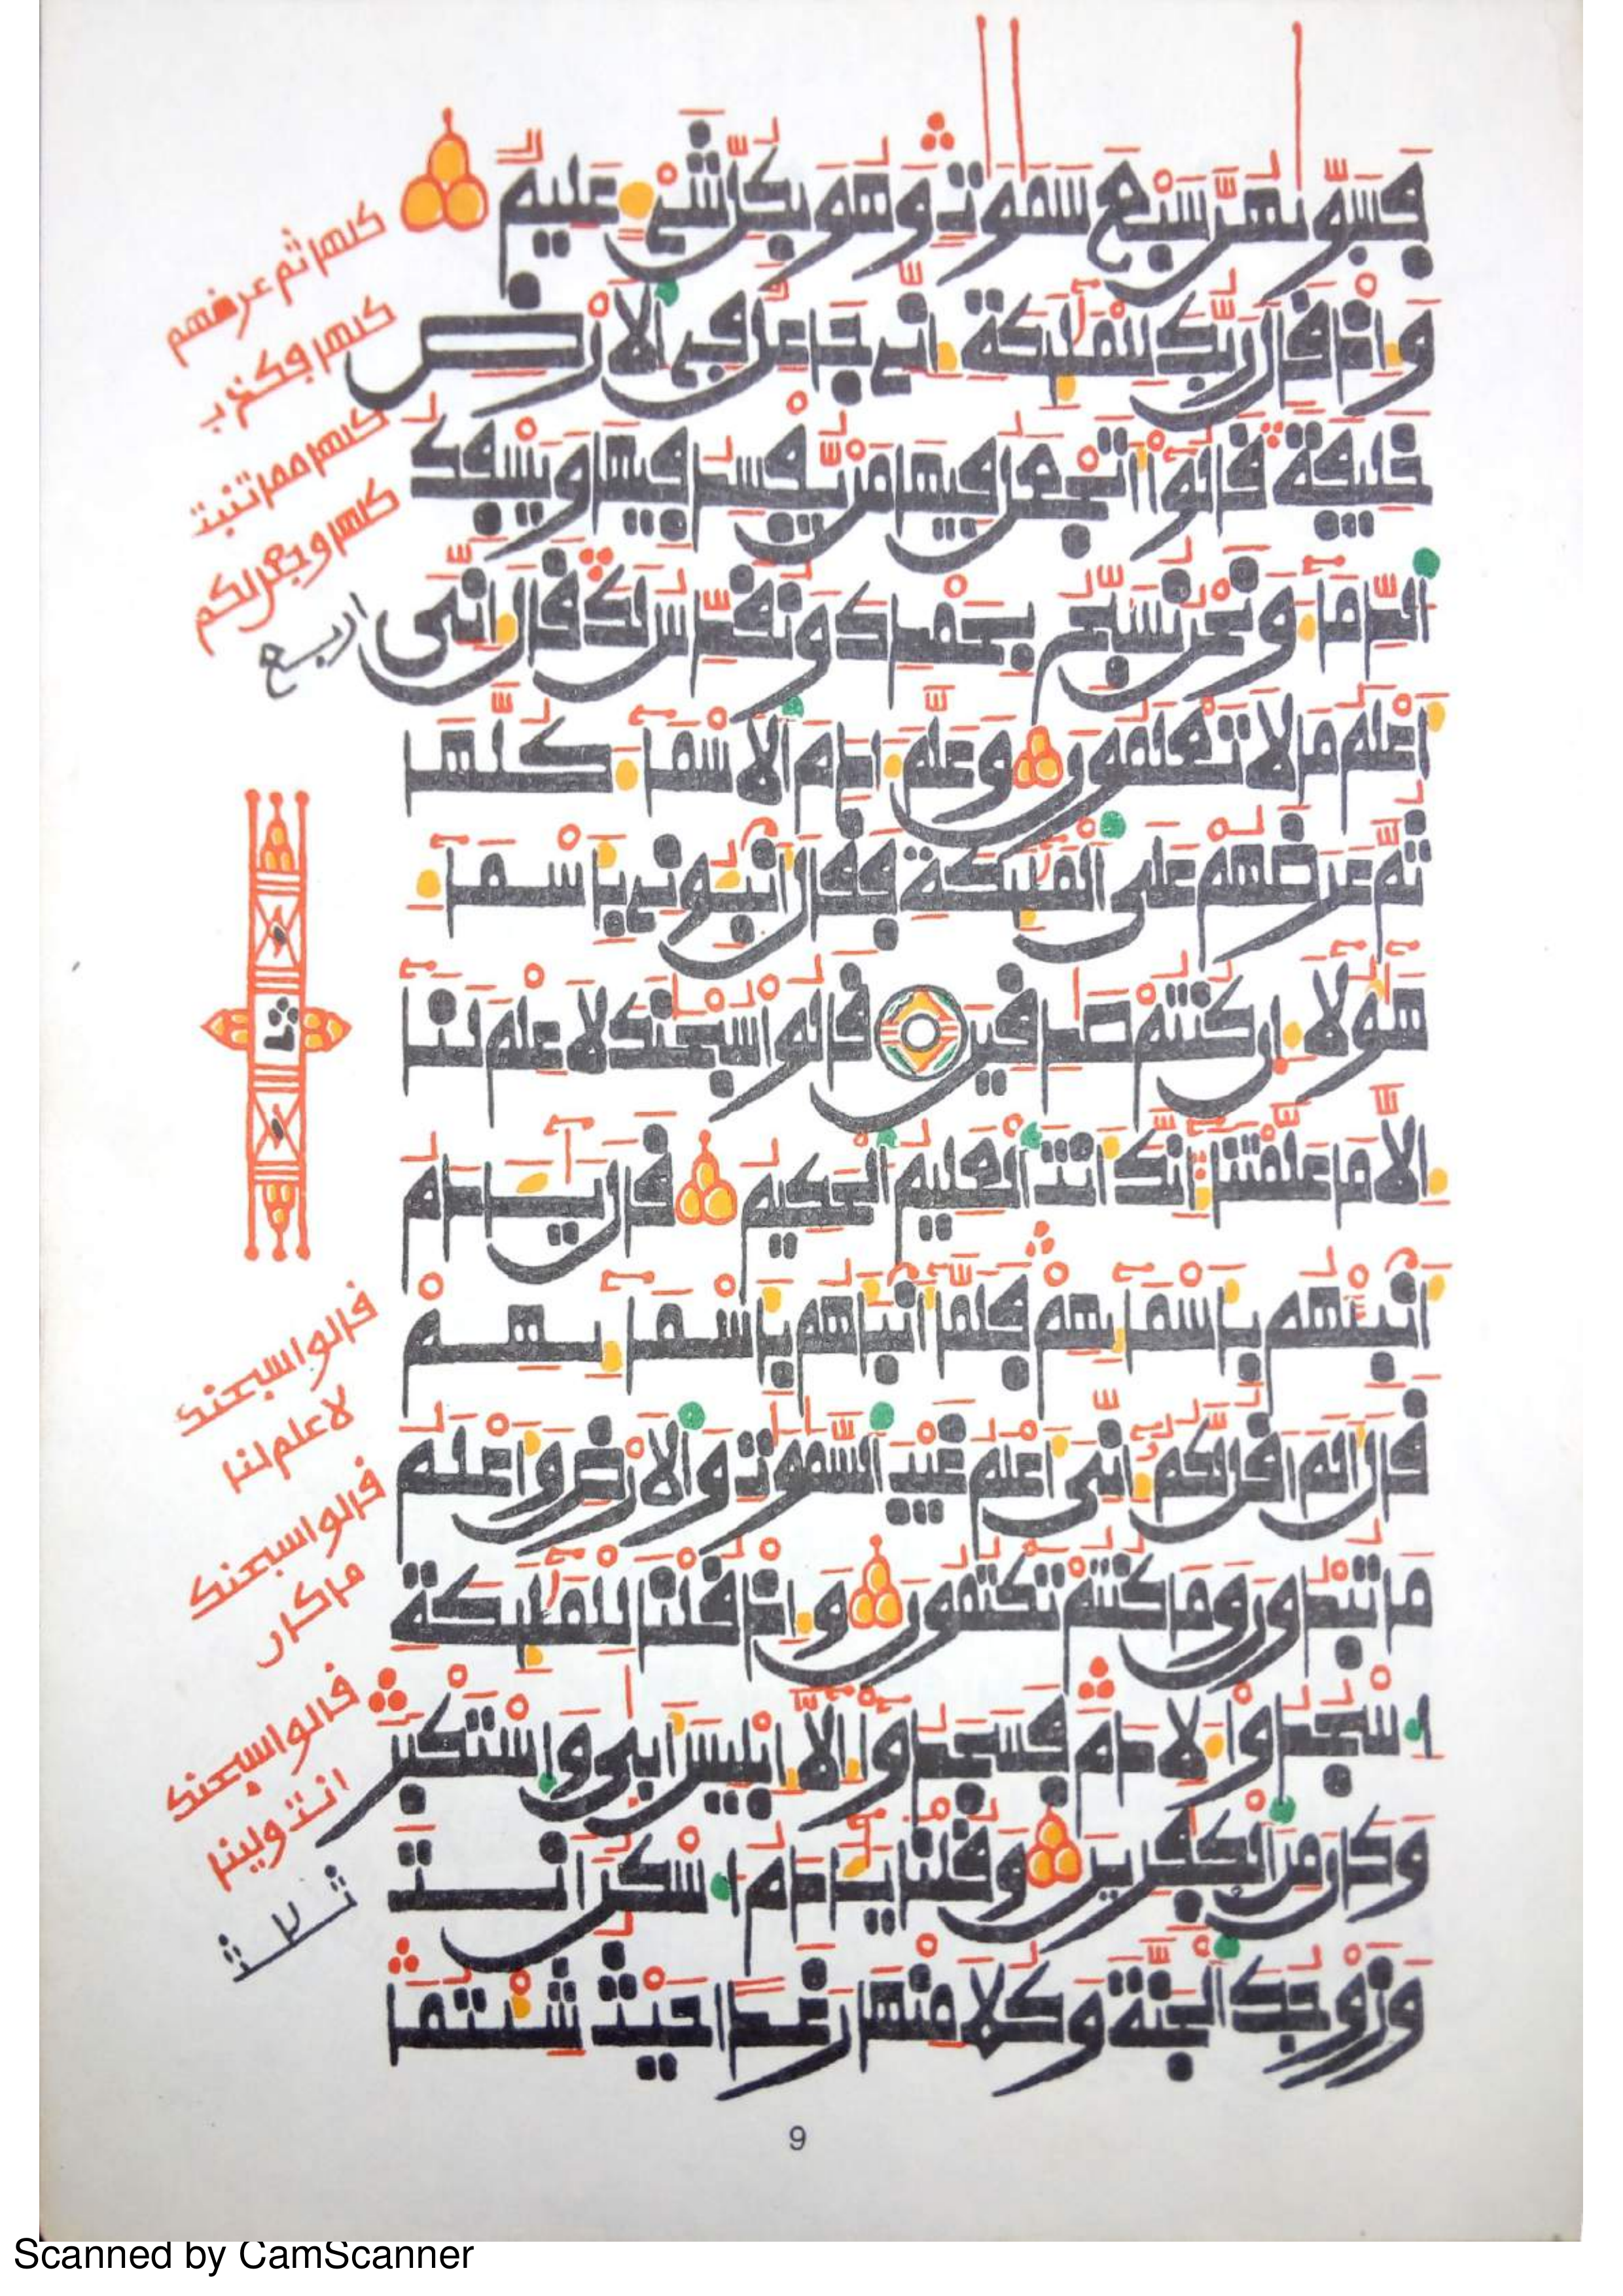 فَسَوّٜيٰهُنَّ سَبْعَ سَمَٰوَٰتٖ وَهُوَ بِكُلِّ شَےْءٍ عَلِيمٞ
وَإِذْ قَالَ رَبُّكَ لِلْمَلَٰٓئِكَةِ إِنِّے جَاعِلٞ فِے اِ۬لَارْضِ
خَلِيفَةٗ قَالُوٓاْ أَتَجْعَلُ فِيهَا مَنْ يُّفْسِدُ فِيهَا وَيَسْفِكُ
اُ۬لدِّمَآءَ وَنَحْنُ نُسَبِّحُ بِحَمْدِكَ وَنُقَدِّسُ لَكَ قَالَ إِنِّيَ
أَعْلَمُ مَا لَا تَعْلَمُونَ وَعَلَّمَ ءَادَمَ اَ۬لَاسْمَآءَ كُلَّهَا
ثُمَّ عَرَضَهُمْ عَلَي اَ۬لْمَلَٰٓئِكَةِ فَقَالَ أَنۢبِـُٔونِے بِأَسْمَآءِ
هَٰٓؤُلَآءِ ان كُنتُمْ صَٰدِقِينَ قَالُواْ سُبْحَٰنَكَ لَا عِلْمَ لَنَآ
إِلَّا مَا عَلَّمْتَنَآ إِنَّكَ أَنتَ اَ۬لْعَلِيمُ اُ۬لْحَكِيمُ قَالَ يَٰٓـَٔادَمُ
أَنۢبِئْهُم بِأَسْمَآئِهِمْ فَلَمَّآ أَنۢبَأَهُم بِأَسْمَآئِهِمْ
قَالَ أَلَمَ اَقُل لَّكُمُۥٓ إِنِّيَ أَعْلَمُ غَيْبَ اَ۬لسَّمَٰوَٰتِ وَالَارْضِ وَأَعْلَمُ
مَا تُبْدُونَ وَمَا كُنتُمْ تَكْتُمُونَ وَإِذْ قُلْنَا لِلْمَلَٰٓئِكَةِ
اِ۟سْجُدُواْ لِأٓدَمَ فَسَجَدُوٓاْ إِلَّآ إِبْلِيسَ أَبۭيٰ وَاسْتَكْبَرَ
وَكَانَ مِنَ اَ۬لْكٰ۪فِرِينَ وَقُلْنَا يَٰٓـَٔادَمُ اُ۟سْكُنَ اَنتَ
وَزَوْجُكَ اَ۬لْجَنَّةَ وَكُلَا مِنْهَا رَغَداً حَيْثُ شِئْتُمَا
كلها ثم عرضهم
كلها فكذب
كلها مما تنبت
كلها وجعل لكم
اربع
قالوا سبحنك
لا علم لنا
قالوا سبحنك
ما كان
قالوا سبحنك
انت ولينا
ثلث
9
Scanned by CamScanner